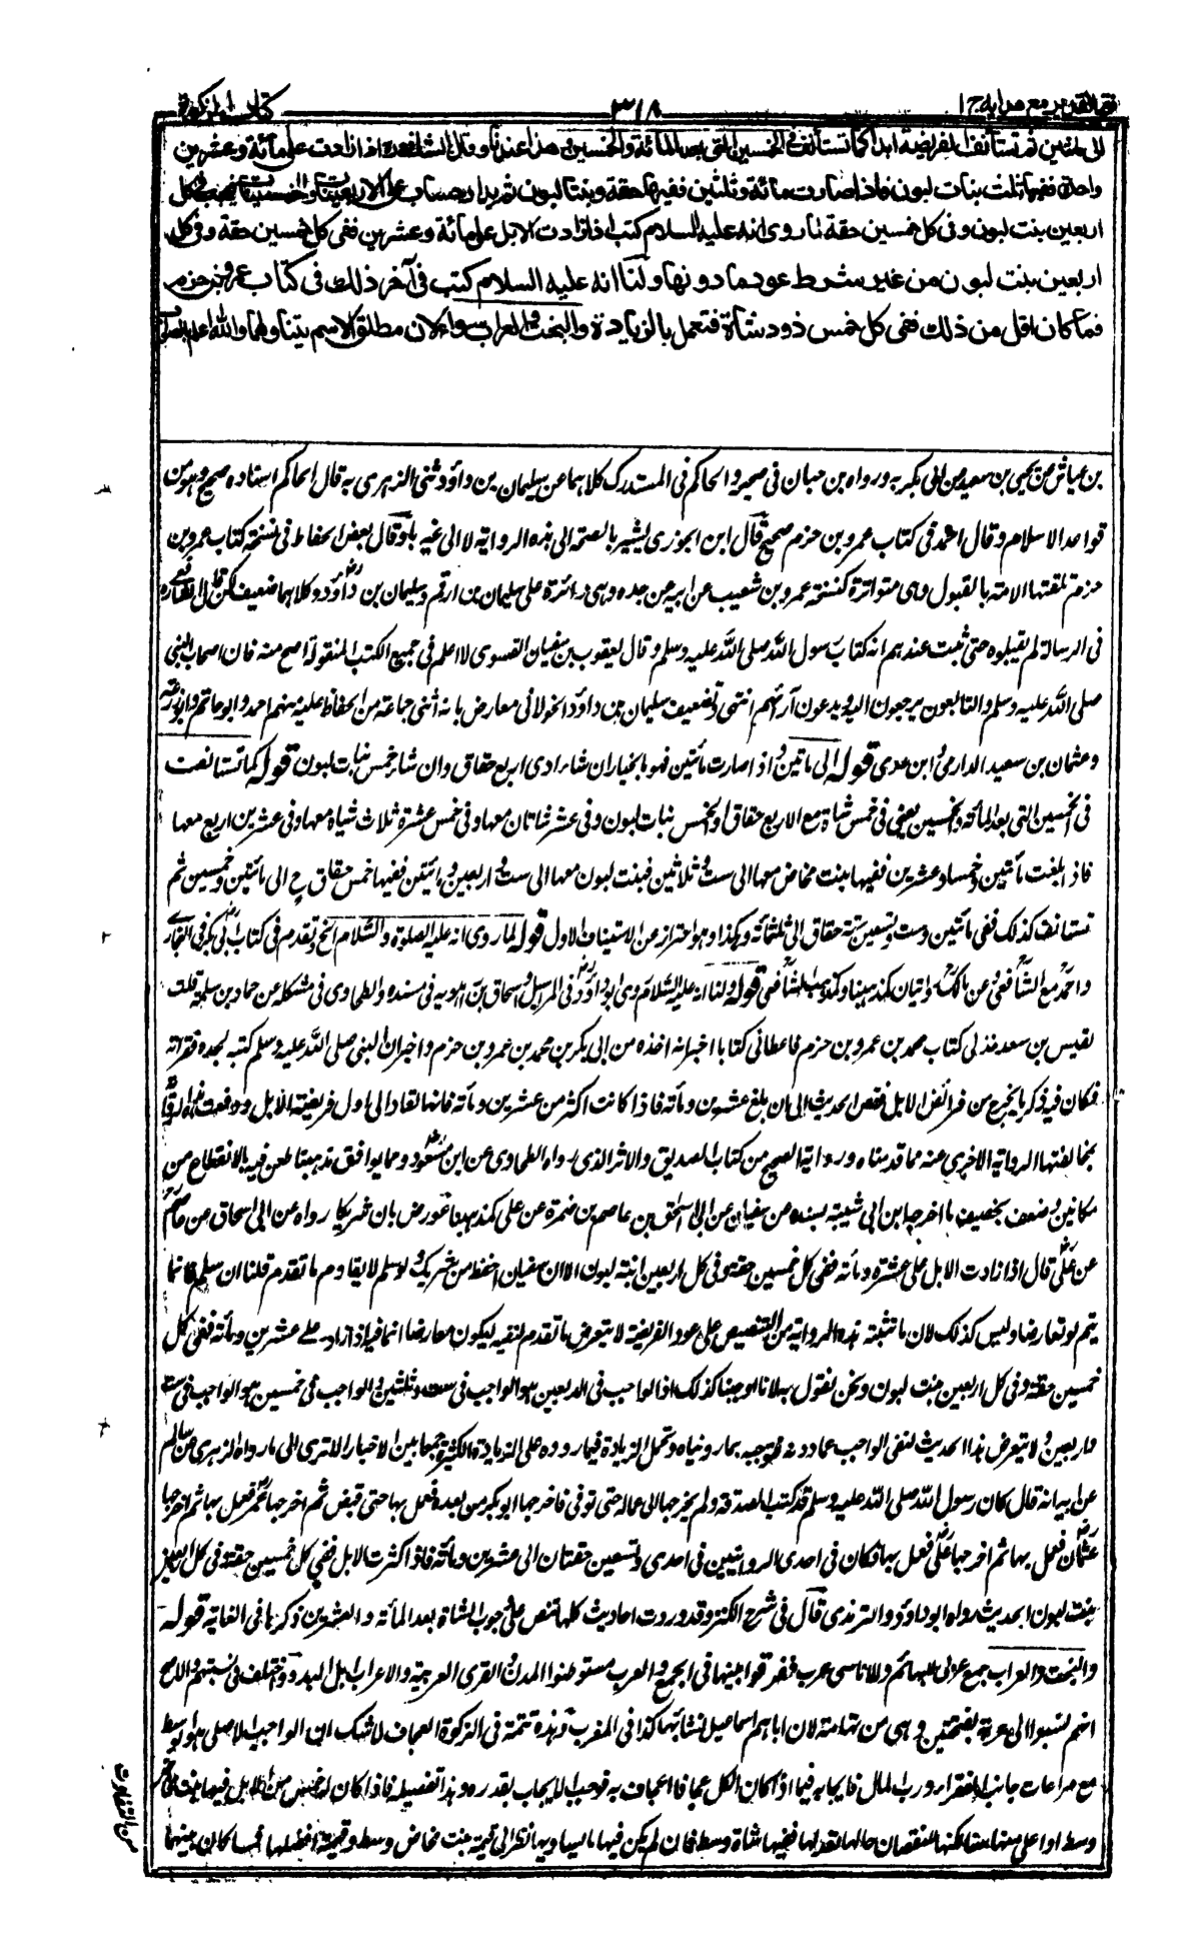 فتح القدير مع هدايه ج ١
٣١٨
كتاب الزكوة
الى مائتين ثم تستأنف الفريضة ابدا كما تستأنف فى الخمسين التى بعد المائة والخمسين وهذا عندنا وقال الشافعى اذا زادت على مائة وعشرين
واحدة ففيها ثلث بنات لبون فاذا صارت مائة وثلثين ففيها حقة وبنتا لبون ثم يدار حساب على الاربعينات والخمسينات فيجب فى كل
اربعين بنت لبون وفى كل خمسين حقة لما روى انه عليه السلام كتب اذا زادت الابل على مائة وعشرين ففى كل خمسين حقة وفى كل
اربعين بنت لبون من غير شرط عود ما دونها ولنا انه عليه السلام كتب فى آخر ذلك فى كتاب عمرو بن حزم
فما كان اقل من ذلك ففى كل خمس ذود شاة فتعمل بالزيادة والبخت والعراب سواء لان مطلق الاسم يتناولهما والله اعلم بالصواب
بن عياش عن يحيى بن سعيد عن ابى بكر به ورواه بن حبان فى صحيحه والحاكم فى المستدرك كلاهما عن سليمان بن داؤد ثنى الزهرى به قال الحاكم اسناده صحيح وهو من
قواعد الاسلام وقال احمد فى كتاب عمرو بن حزم صحيح قال ابن الجوزى يشير بالصحة الى هذه الرواية لا الى غيره وقال بعض الحفاظ فى نسخة كتاب عمرو بن
حزم تلقتها الامة بالقبول وهى متواترة كنسخة عمرو بن شعيب عن ابيه عن جده وهى دائرة على سليمان بن ارقم وسليمان بن داؤد وكلاهما ضعيف لكن قال الشافعى
فى الرسالة لم يقبلوه حتى ثبت عندهم انه كتاب رسول الله صلى الله عليه وسلم وقال يعقوب بن سفيان الفسوى لا اعلم فى جميع الكتب المنقولة اصح منه فان اصحاب النبى
صلى الله عليه وسلم والتابعون يرجعون اليه ويدعون آرائهم انتهى وتضعيف سليمان بن داؤد الخولانى معارض بانه اثنى جماعة من الحفاظ عليه منهم احمد وابو حاتم وابو زرعة
وعثمان بن سعيد الدارمى وابن عدى قوله الى مائتين واذا صارت مائتين فهو بالخيار ان شاء ادى اربع حقاق وان شاء خمس بنات لبون قوله كما تستانف
فى الخمسين التى بعد المائة والخمسين يعنى فى خمس شاة مع الاربع حقاق او الخمس بنات لبون وفى عشر شاتان معها وفى خمس عشرة ثلاث شياه معها وفى عشرين اربع معها
فاذا بلغت مائتين وخمسا وعشرين ففيها بنت مخاض معها الى ست وثلاثين فبنت لبون معها الى ست واربعين ومائتين ففيها خمس حقاق ح الى مائتين وخمسين ثم
تستانف كذلك ففى مائتين وست وتسعين ستة حقاق الى ثلثمائة وهكذا وهو احتراز عن الاستيناف الاول قوله لما روى انه عليه الصلوة والسلام الخ تقدم فى كتاب ابى بكر فى البخارى
لقيس بن سعد خذ لى كتاب محمد بن عمرو بن حزم فاعطانى كتابا اخبر انه اخذه من ابى بكر بن محمد بن عمرو بن حزم واخبر ان النبى صلى الله عليه وسلم كتبه لجده فقرأته
فكان فيه ذكر ما يخرج من فرائض الابل فقص الحديث الى ان بلغ عشرين ومائة فاذا كانت اكثر من عشرين ومائة فانها تعاد الى اول فريضة الابل ودفعت هذه الرواية
بمخالفتها الرواية الاخرى عنه مما قدمناه ورواية الصحيح من كتاب الصديق والاثر الذى رواه الطحاوى عن ابن مسعود ومما يوافق مذهبنا طعن فيه بالانقطاع من
مكانين وضعف بخصيف ما اخرجه ابن ابى شيبة بسنده عن سفيان عن ابى اسحق بن عاصم بن ضمرة عن على كمذهبنا عورض بان شريكا رواه عن ابى اسحاق عن عاصم
عن على قال اذا زادت الابل على عشرة ومائة ففى كل خمسين حقة وفى كل اربعين ابنة لبون الا ان سفيان احفظ من شريك ولو سلم لا يقاوم ما تقدم قلنا ان سلم فانما
يتم لو تعارضا وليس كذلك لان ما تثبته هذه الرواية من التنصيص على عود الفريضة لا يتعرض ما تقدم لنفيه ليكون معارضا انما فيه اذا زادت على عشرين ومائة ففى كل
خمسين حقة وفى كل اربعين بنت لبون ونحن نقول به لانا اوجبنا كذلك اذ الواجب فى الاربعين هو الواجب فى ست وثلثين والواجب فى خمسين هو الواجب فى ست
واربعين ولا يتعرض هذا الحديث لنفى الواجب عما دونه فنوجبه بما رويناه وتحمل الزيادة فيما رووه على الزيادة الكثيرة جمعا بين الاخبار الا ترى الى ما رواه الزهرى عن سالم
عن ابيه انه قال كان رسول الله صلى الله عليه وسلم قد كتب الصدقة ولم يخرجها الى عماله حتى توفى فاخرجها ابو بكر من بعده فعمل بها حتى قبض ثم اخرجها عمر فعمل بها ثم اخرجها
عثمان فعمل بها ثم اخرجها على فعمل بها فكان فى احدى الروايتين فى احدى وتسعين حقتان الى عشرين ومائة فاذا كثرت الابل ففى كل خمسين حقة وفى كل اربعين
بنت لبون الحديث رواه ابو داؤد والترمذى قال فى شرح الكنز وقد وردت احاديث كلها تنص على وجوب الشاة بعد المائة والعشرين ذكرها فى الغاية قوله
والبخت والعراب جمع عربى للبهائم وللاناسى عرب ففرقوا بينهما فى الجمع والعرب مستوطنوا المدن والقرى العربية والاعراب اهل البدو واختلف فى نسبتهم والاصح
انهم نسبوا الى عربة بفتحتين وهى من تهامة لان اباهم اسماعيل نشأ بها كذا فى المغرب وهذه تتمة فى الزكوة العجاف لا شك ان الواجب الاصلى هو الوسط
مع مراعات جانب الفقراء ورب المال فايجابه فيما اذا كان الكل عجافا اجحاف به فوجب الايجاب بقدره وهذا تفصيله فاذا كان له خمس من الابل فيها بنت مخاض
وسط او اعلى منها سنا لكنها لنقصان حالها تعدلها ففيها شاة وسط فان لم يكن فيها ما يساويها نظر الى قيمة بنت مخاض وسط وقيمة افضلها فما كان بينهما
من التفاوت